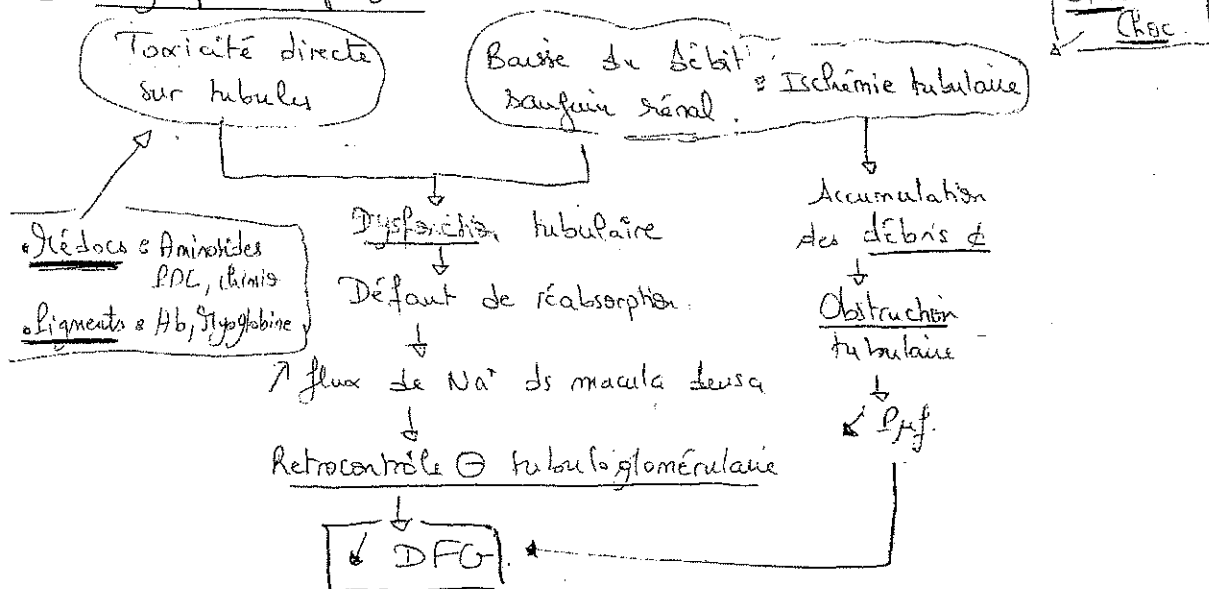 Choc.
Toxicité directe
sur tubules
Baisse du débit
sanguin rénal.
: Ischémie tubulaire
• Médocs : Aminosides
PDC, chimio
• Pigments : Hb, Myoglobine
Dysfonction tubulaire
Défaut de réabsorption.
↗ flux de Na⁺ ds macula densa
Retrocontrôle ⊖ tubuloglomérulaire
↙ DFG.
Accumulation
des débris ¢
Obstruction
tubulaire
↙ Pµf.